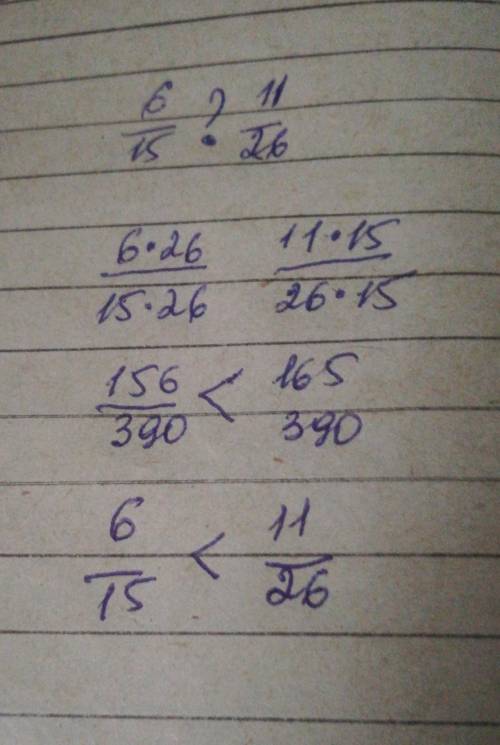 6/15 ? 11/26
6·26/15·26 11·15/26·15
156/390 < 165/390
6/15 < 11/26